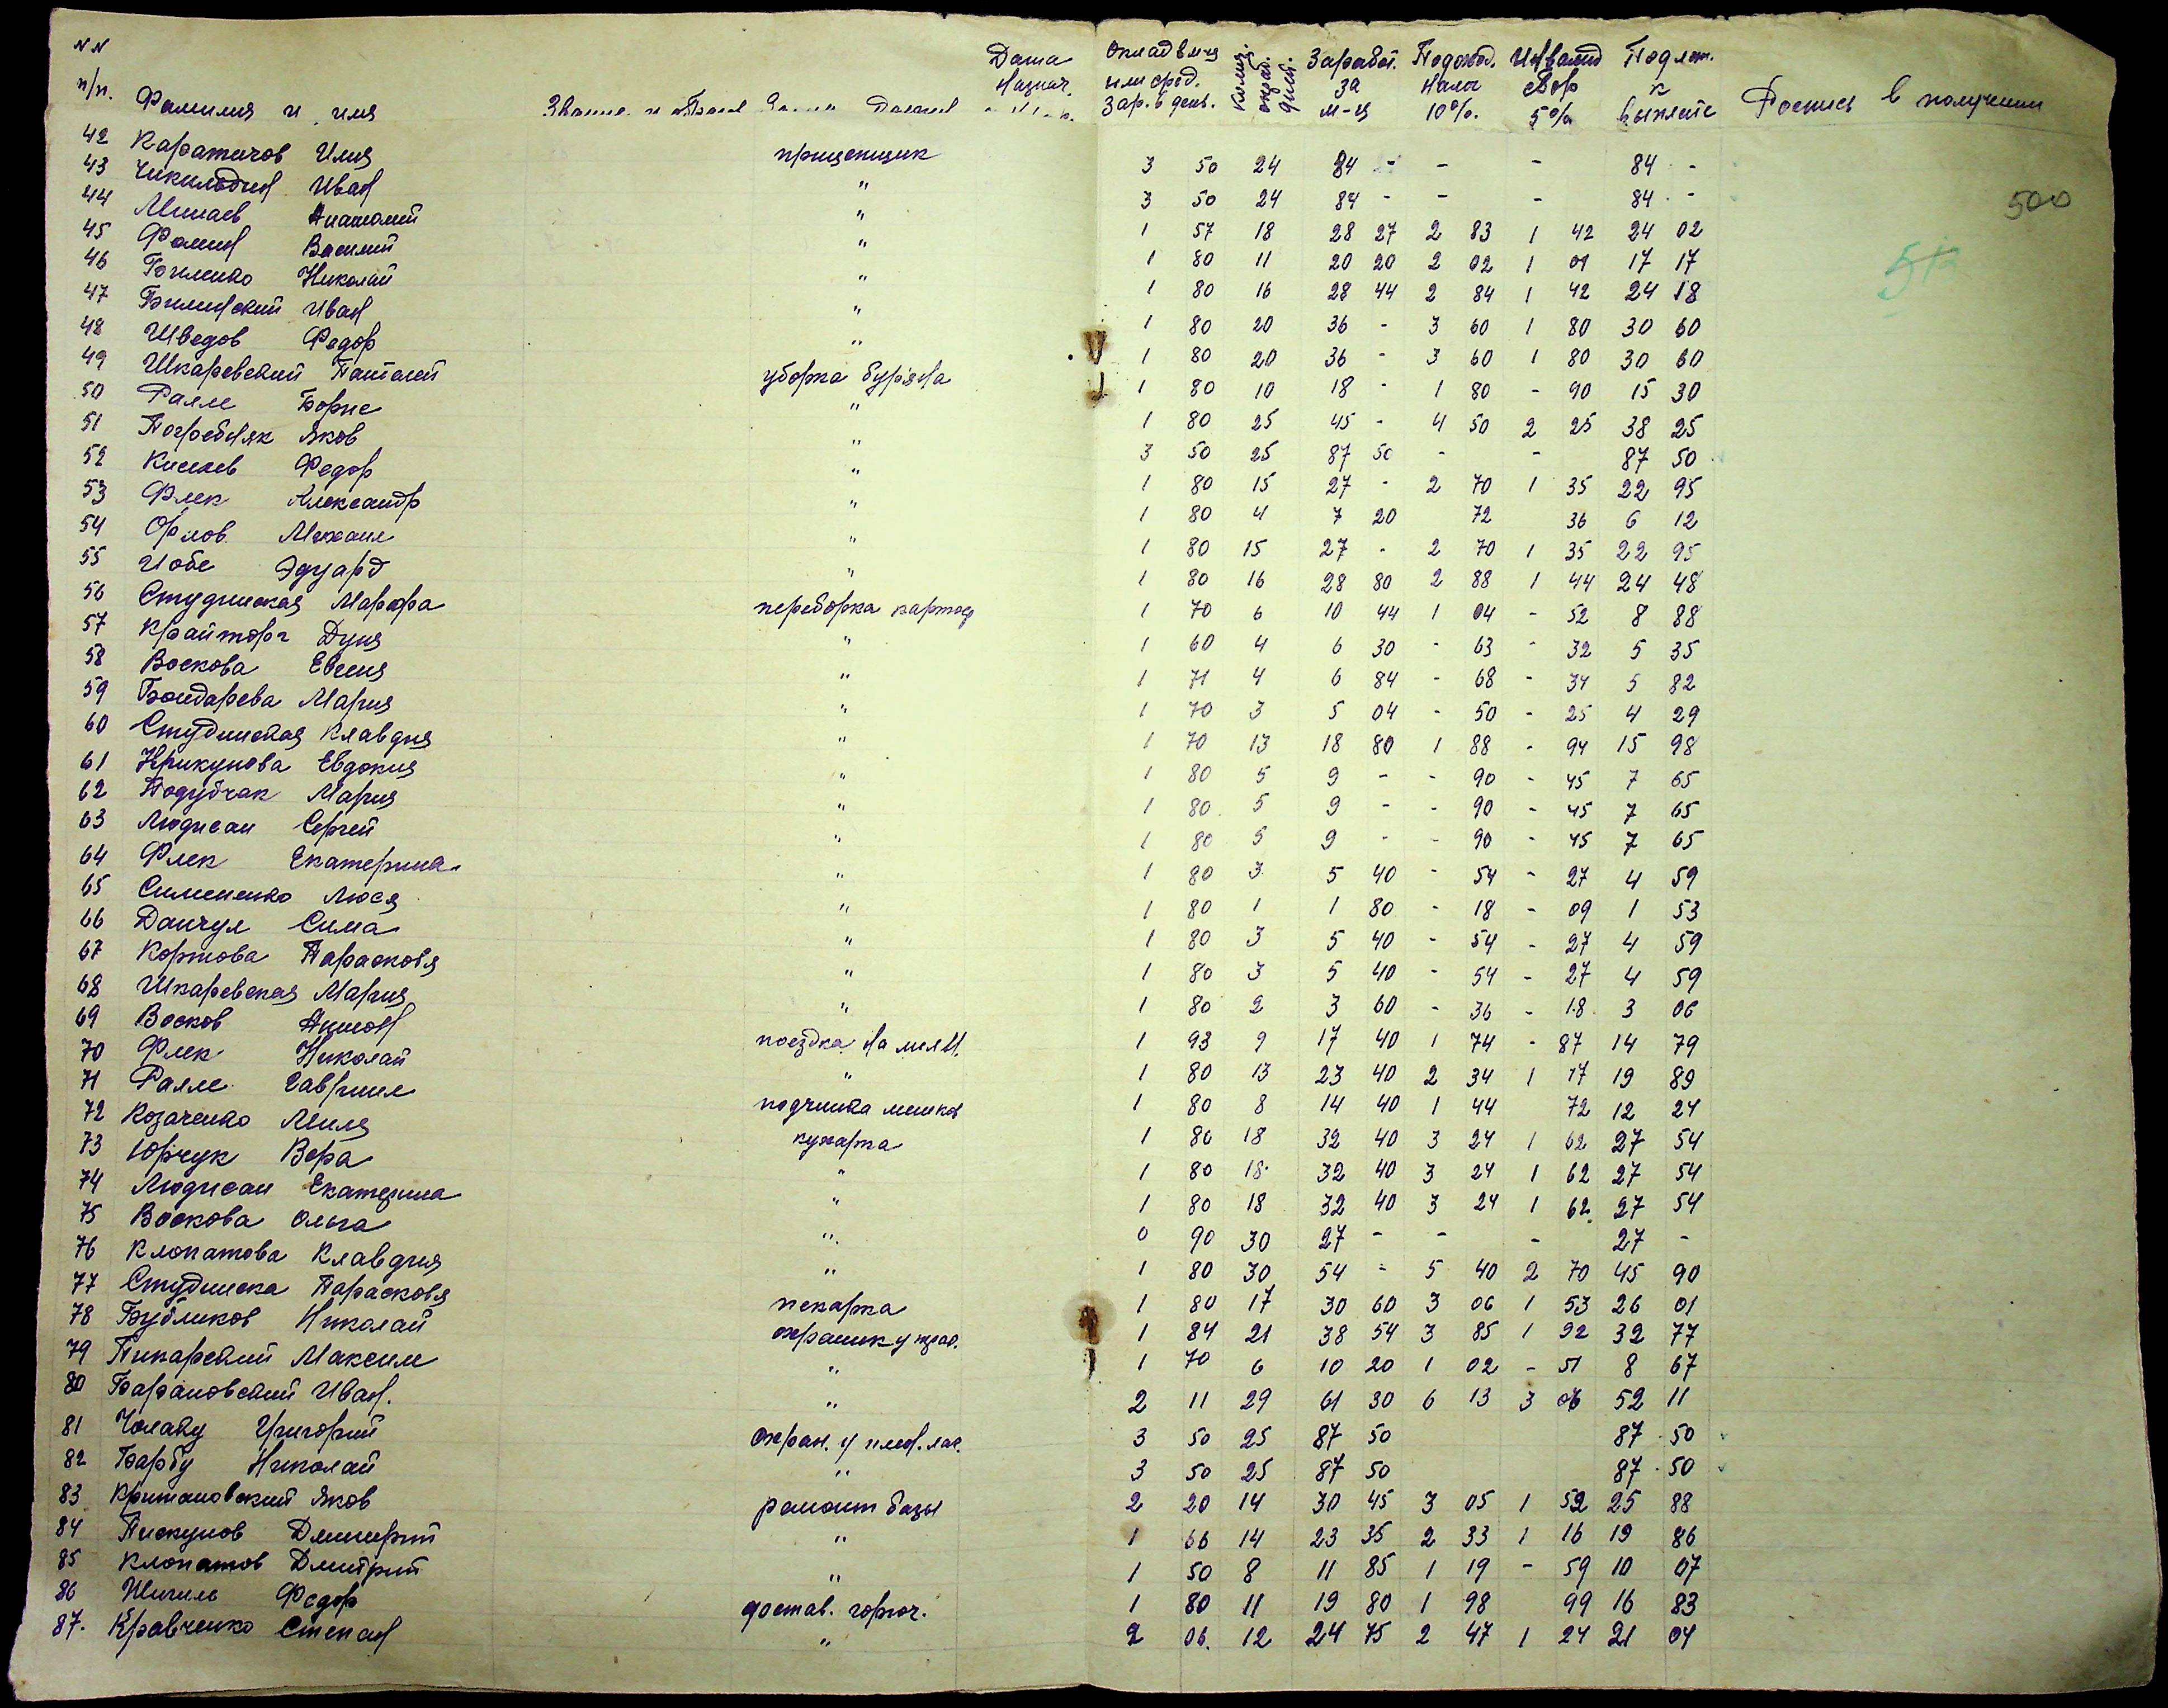 NN п/п. Фамилия и имя Звание Дата назнач. Оклад в м-ц или сред. зар. в день. Колич. отраб. дней. Заработ. за м-ц Подоход. налог 10%. Инвалид сбор 5% Подлеж. к выплате Роспись в получении
42 Каратичов Илия прицепщик 3 50 24 84 - - - 84 -
43 Иван " 3 50 24 84 - - - 84 -
44 Минаев Анатолий " 1 57 18 28 27 2 83 1 42 24 02
45 Фомин Василий " 1 80 11 20 20 2 02 1 01 17 17
46 Николай " 1 80 16 28 44 2 84 1 42 24 18
47 Билинский Иван " 1 80 20 36 - 3 60 1 80 30 60
48 Шведов Федор " 1 80 20 36 - 3 60 1 80 30 60
49 Шкаревский уборка бурьяна 1 80 10 18 - 1 80 - 90 15 30
50 Ралле Борис " 1 80 25 45 - 4 50 2 25 38 25
51 Погребняк Яков " 3 50 25 87 50 - - 87 50
52 Киселев Федор " 1 80 15 27 - 2 70 1 35 22 95
53 Флек Александр " 1 80 4 7 20 72 36 6 12
54 Орлов Михаил " 1 80 15 27 - 2 70 1 35 22 95
55 Иобе Эдуард " 1 80 16 28 80 2 88 1 44 24 48
56 Студинская Марфа переборка картоф 1 70 6 10 44 1 04 - 52 8 88
57 Крайторг Дуня " 1 60 4 6 30 - 63 - 32 5 35
58 Воскова Евгения " 1 71 4 6 84 - 68 - 34 5 82
59 Бондарева Мария " 1 70 3 5 04 - 50 - 25 4 29
60 Студинская Клавдия " 1 70 13 18 80 1 88 - 94 15 98
61 Крикунова Евдокия " 1 80 5 9 - - 90 - 45 7 65
62 Подубчак Мария " 1 80 5 9 - - 90 - 45 7 65
63 Людисан Сергей " 1 80 5 9 - - 90 - 45 7 65
64 Флек Екатерина " 1 80 3 5 40 - 54 - 27 4 59
65 Симоненко Люся " 1 80 1 1 80 - 18 - 09 1 53
66 Данчул Сима " 1 80 3 5 40 - 54 - 27 4 59
67 Кортова Парасковя " 1 80 3 5 40 - 54 - 27 4 59
68 Шкаревская Мария " 1 80 2 3 60 - 36 - 18 3 06
69 Восков Антон поездка на мелн. 1 93 9 17 40 1 74 - 87 14 79
70 Флек Николай " 1 80 13 23 40 2 34 1 17 19 89
71 Ралле Гавриил подчинка мешков 1 80 8 14 40 1 44 72 12 24
72 Козаченко Миля кухарка 1 80 18 32 40 3 24 1 62 27 54
73 Юрчук Вера " 1 80 18 32 40 3 24 1 62 27 54
74 Людисан Екатерина " 1 80 18 32 40 3 24 1 62 27 54
75 Воскова Ольга " 0 90 30 27 - - - 27 -
76 Клопатова Клавдия " 1 80 30 54 - 5 40 2 70 45 90
77 Студинска Парасковя пекарка 1 80 17 30 60 3 06 1 53 26 01
78 Бубликов Николай 1 84 21 38 54 3 85 1 92 32 77
79 Пикарский Максим " 1 70 6 10 20 1 02 - 51 8 67
80 Барановский Иван. " 2 11 29 61 30 6 13 3 06 52 11
81 Чолаку Григорий охран. у 3 50 25 87 50 87 50
82 Барбу Николай " 3 50 25 87 50 87 50
83 Критановский Яков ремонт базы 2 20 14 30 45 3 05 1 52 25 88
84 Пискунов Дмитрий " 1 66 14 23 35 2 33 1 16 19 86
85 Клопатов Дмитрий " 1 50 8 11 85 1 19 - 59 10 07
86 Федор достав. горюч. 1 80 11 19 80 1 98 99 16 83
87. Кравченко Степан " 2 06. 12 24 75 2 47 1 24 21 04
500